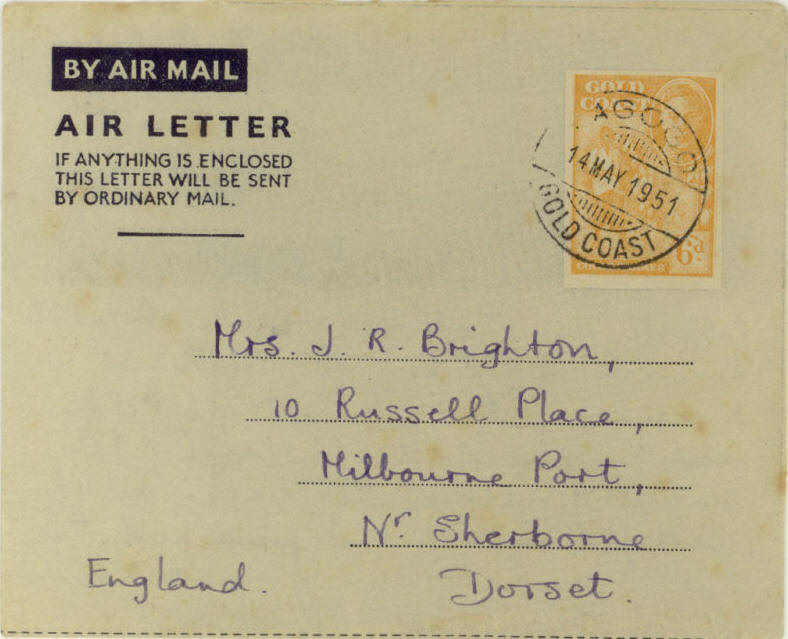 BY AIR MAIL
AIR LETTER
IF ANYTHING IS ENCLOSED
THIS LETTER WILL BE SENT
BY ORDINARY MAIL.
GOLD
COAST
AGOGO
14 MAY 1951
GOLD COAST
6d.
Mrs. J. R. Brighton,
10 Russell Place,
Milbourne Port,
Nr. Sherborne
Dorset.
England.